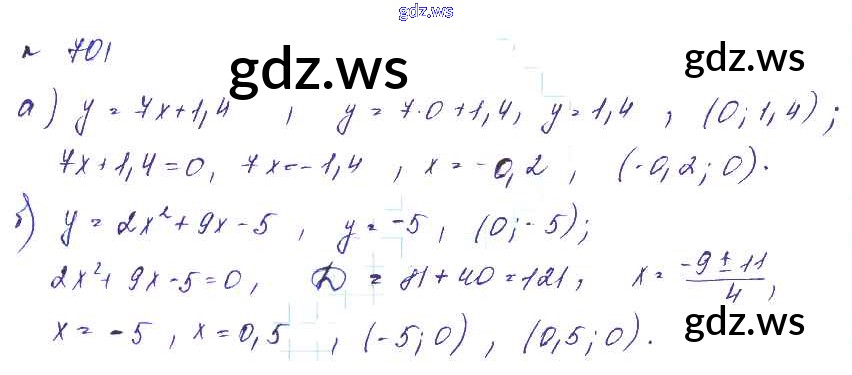 gdz.ws
№ 701
gdz.ws
gdz.ws
а) y = 7x+1,4 , y = 7·0+1,4, y = 1,4 , (0; 1,4);
7x+1,4=0, 7x=-1,4 , x = -0,2 , (-0,2; 0).
б) y = 2x²+9x-5 , y = -5 , (0; -5);
2x²+9x-5=0, D = 81+40=121, x = (-9±11)/4,
x = -5 , x = 0,5 , (-5; 0) , (0,5; 0).
gdz.ws